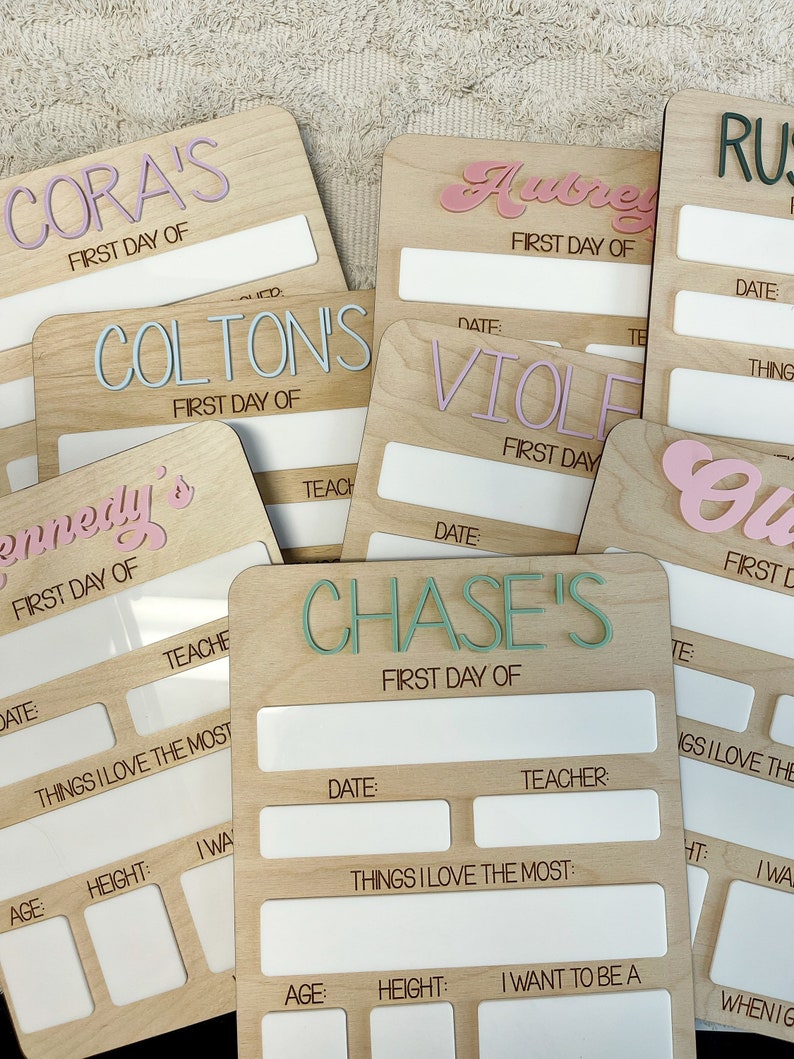 CORA'S
FIRST DAY OF
Aubrey
FIRST DAY OF
DATE:
RUS
DATE:
THING
COLTON'S
FIRST DAY OF
TEACH
VIOLE
FIRST DAY
DATE:
Kennedy's
FIRST DAY OF
TEACHE
DATE:
THINGS I LOVE THE MOST
AGE:
HEIGHT:
I WA
FIRST D
TE:
NGS I LOVE THE
HT:
I WAN
WHEN I G
CHASE'S
FIRST DAY OF
DATE:
TEACHER:
THINGS I LOVE THE MOST:
AGE:
HEIGHT:
I WANT TO BE A